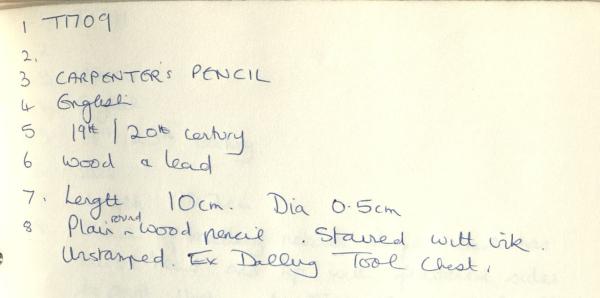 1 T1709
2.
3 CARPENTER'S PENCIL
4 English
5 19th / 20th century
6 wood & lead
7. Length 10cm. Dia 0.5cm
8 Plain round wood pencil. Stained with ink.
Unstamped. Ex Tool Chest.